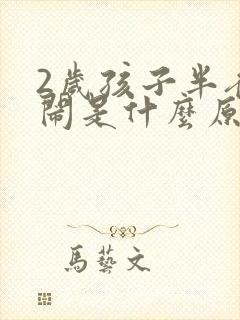 2歲孩子半
鬧是什麼原
馬藝文